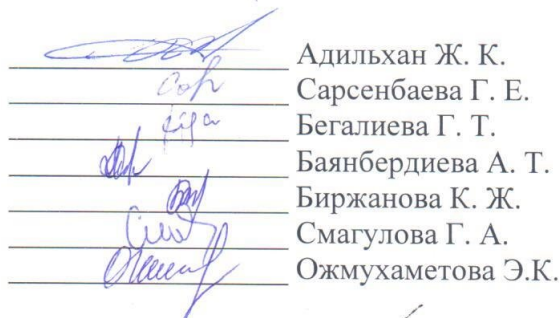 Адильхан Ж. К.
Сарсенбаева Г. Е.
Бегалиева Г. Т.
Баянбердиева А. Т.
Биржанова К. Ж.
Смагулова Г. А.
Ожмухаметова Э.К.